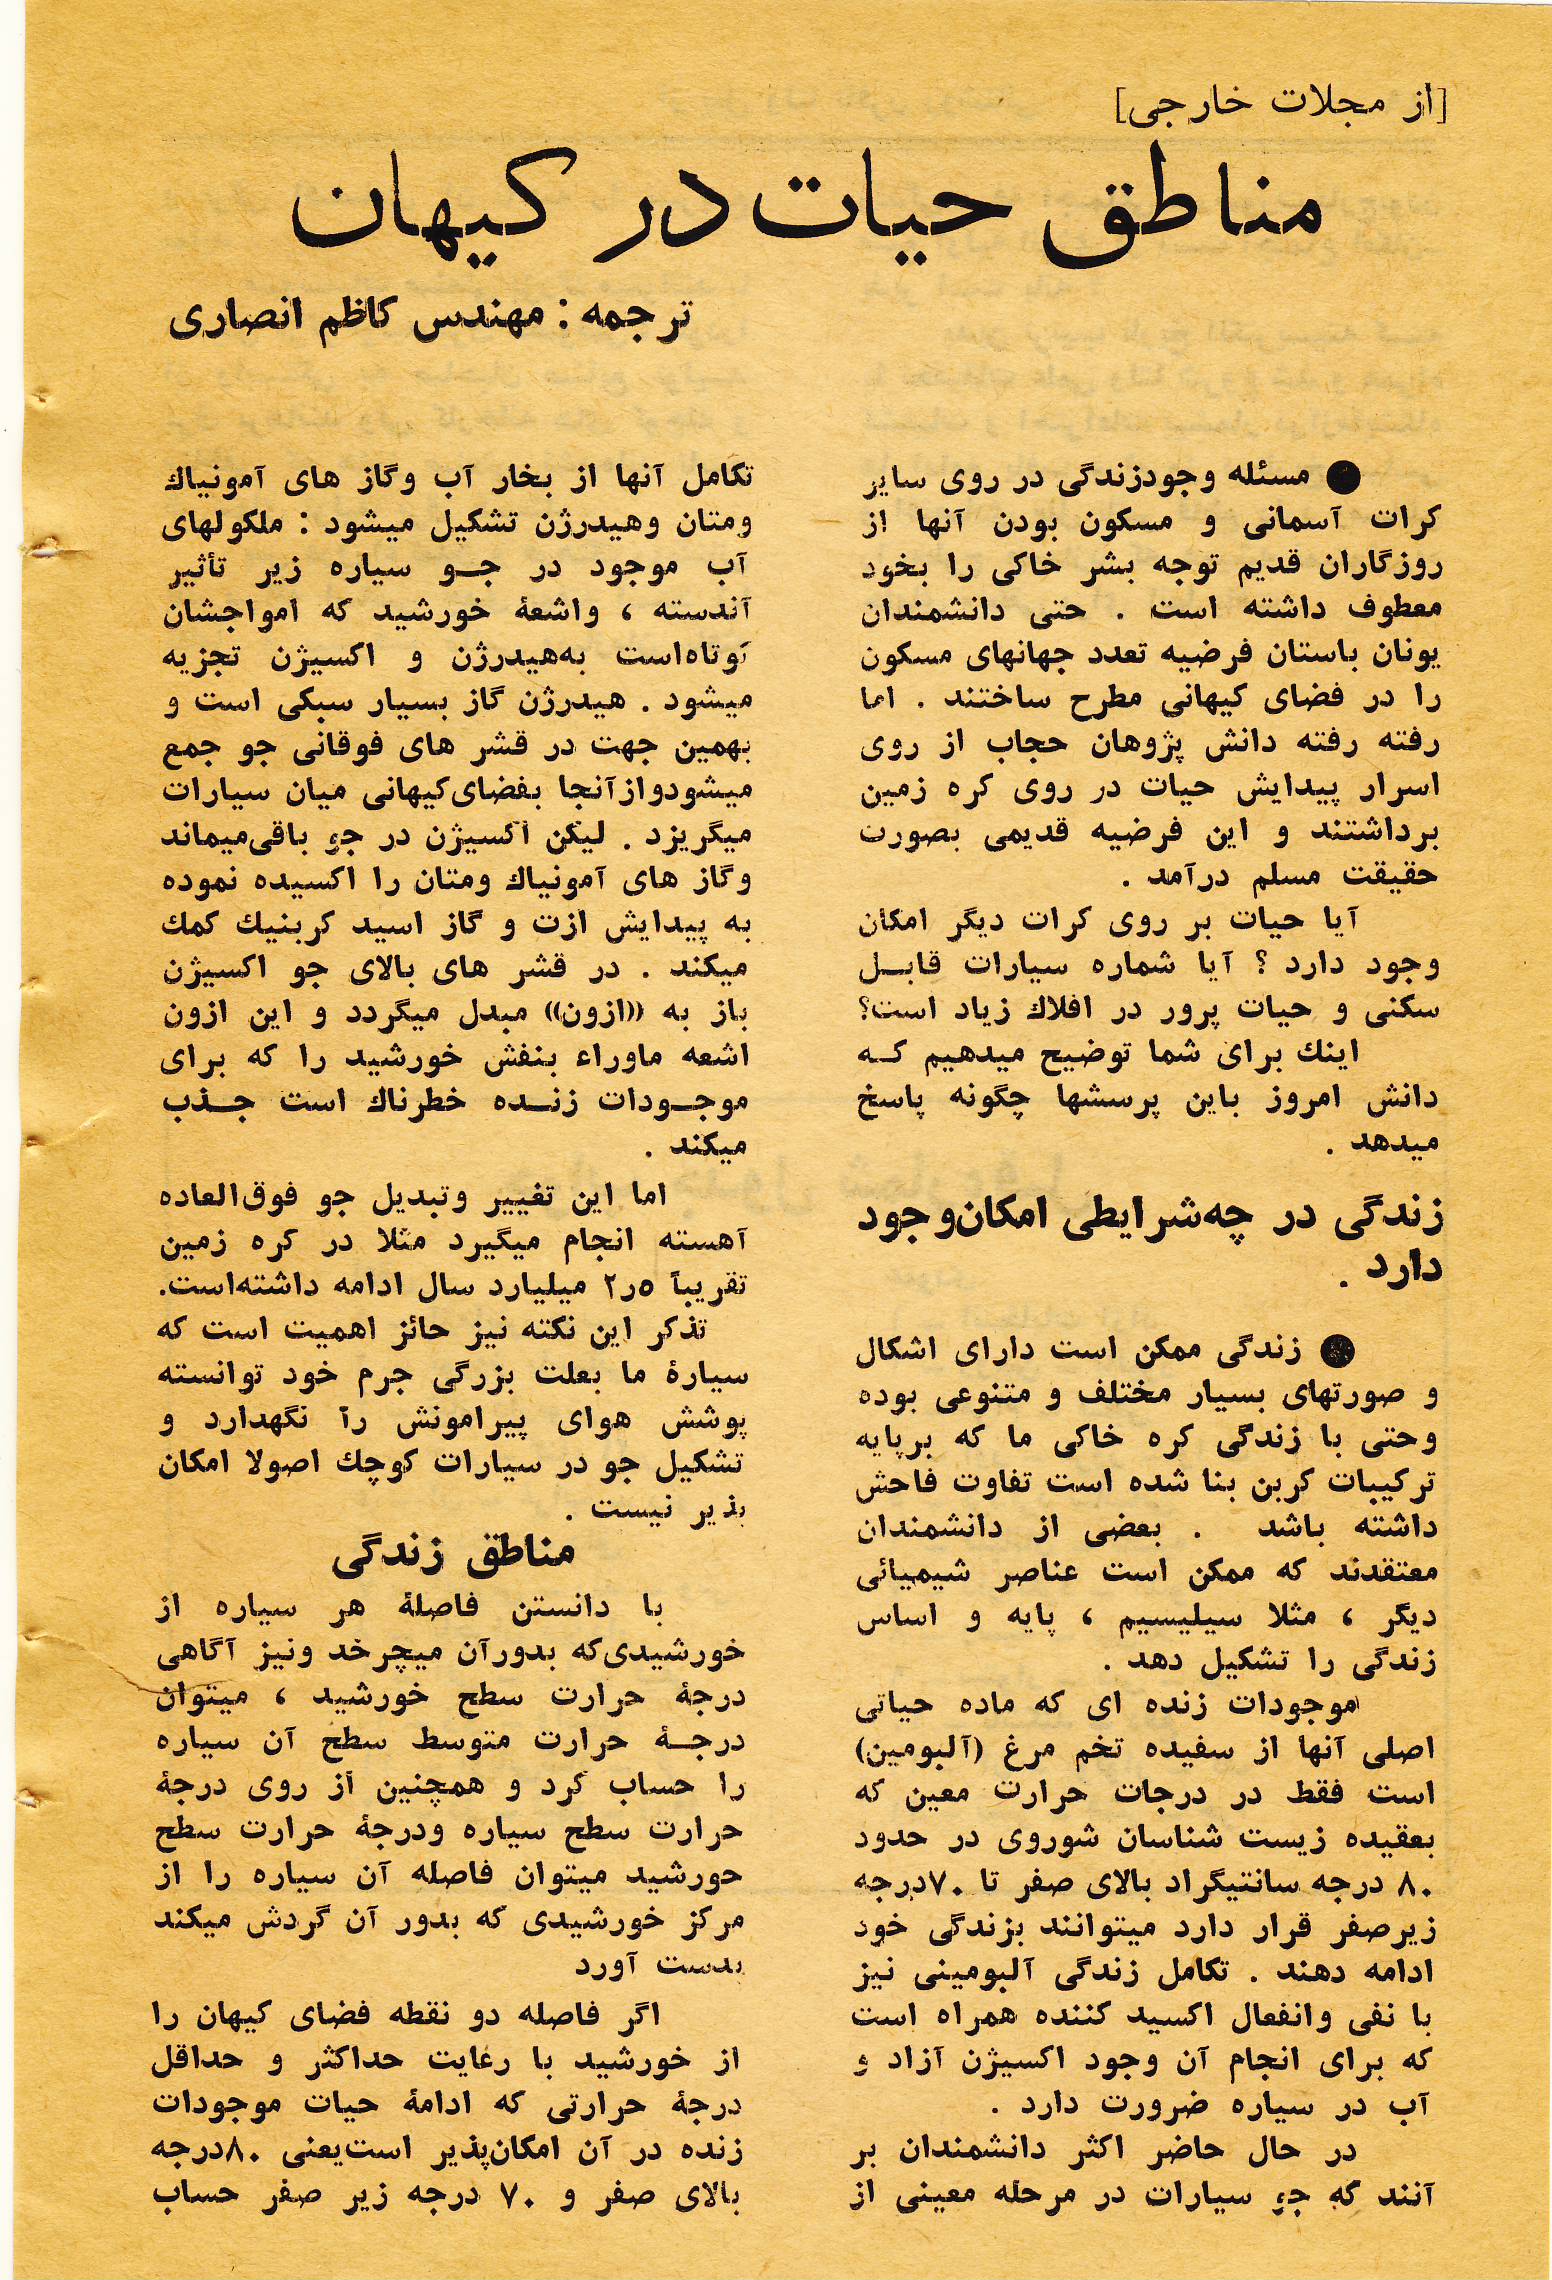 [از مجلات خارجی]
مناطق حیات در کیهان
ترجمه : مهندس کاظم انصاری
● مسئله وجودزندگی در روی سایر
کرات آسمانی و مسکون بودن آنها از
روزگاران قدیم توجه بشر خاکی را بخود
معطوف داشته است . حتی دانشمندان
یونان باستان فرضیه تعدد جهانهای مسکون
را در فضای کیهانی مطرح ساختند . اما
رفته رفته دانش پژوهان حجاب از روی
اسرار پیدایش حیات در روی کره زمین
برداشتند و این فرضیه قدیمی بصورت
حقیقت مسلم درآمد .
آیا حیات بر روی کرات دیگر امکان
وجود دارد ؟ آیا شماره سیارات قابـل
سکنی و حیات پرور در افلاك زیاد است؟
اینك برای شما توضیح میدهیم کـه
دانش امروز باین پرسشها چگونه پاسخ
میدهد .
زندگی در چه‌شرایطی امکان‌وجود
دارد .
● زندگی ممکن است دارای اشکال
و صورتهای بسیار مختلف و متنوعی بوده
وحتی با زندگی کره خاکی ما که برپایه
ترکیبات کربن بنا شده است تفاوت فاحش
داشته باشد . بعضی از دانشمندان
معتقدند که ممکن است عناصر شیمیائی
دیگر ، مثلا سیلیسیم ، پایه و اساس
زندگی را تشکیل دهد .
موجودات زنده ای که ماده حیاتی
اصلی آنها از سفیده تخم مرغ (آلبومین)
است فقط در درجات حرارت معین که
بعقیده زیست شناسان شوروی در حدود
۸۰ درجه سانتیگراد بالای صفر تا ۷۰درجه
زیرصفر قرار دارد میتوانند بزندگی خود
ادامه دهند . تکامل زندگی آلبومینی نیز
با نفی وانفعال اکسید کننده همراه است
که برای انجام آن وجود اکسیژن آزاد و
آب در سیاره ضرورت دارد .
در حال حاضر اکثر دانشمندان بر
آنند که جوِ سیارات در مرحله معینی از
تکامل آنها از بخار آب وگاز های آمونیاك
ومتان وهیدرژن تشکیل میشود : ملکولهای
آب موجود در جـو سیاره زیر تأثیر
آندسته ، واشعهٔ خورشید که امواجشان
کوتاه‌است به‌هیدرژن و اکسیژن تجزیه
میشود . هیدرژن گاز بسیار سبکی است و
بهمین جهت در قشر های فوقانی جو جمع
میشودوازآنجا بفضای‌کیهانی میان سیارات
میگریزد . لیکن اکسیژن در جوِ باقی‌میماند
وگاز های آمونیاك ومتان را اکسیده نموده
به پیدایش ازت و گاز اسید کربنیك کمك
میکند . در قشر های بالای جو اکسیژن
باز به ((ازون)) مبدل میگردد و این ازون
اشعه ماوراء بنفش خورشید را که برای
موجـودات زنـده خطرناك است جـذب
میکند .
اما این تغییر وتبدیل جو فوق‌العاده
آهسته انجام میگیرد مثلا در کره زمین
تقریباً ۲ر۵ میلیارد سال ادامه داشته‌است.
تذکر این نکته نیز حائز اهمیت است که
سیارهٔ ما بعلت بزرگی جرم خود توانسته
پوشش هوای پیرامونش را نگهدارد و
تشکیل جو در سیارات کوچك اصولا امکان
پذیر نیست .
مناطق زندگی
با دانستن فاصلهٔ هر سیاره از
خورشیدی‌که بدورآن میچرخد ونیز آگاهی
درجهٔ حرارت سطح خورشید ، میتوان
درجـهٔ حرارت متوسط سطح آن سیاره
را حساب کرد و همچنین از روی درجهٔ
حرارت سطح سیاره ودرجهٔ حرارت سطح
خورشید میتوان فاصله آن سیاره را از
مرکز خورشیدی که بدور آن گردش میکند
بدست آورد
اگر فاصله دو نقطه فضای کیهان را
از خورشید با رعایت حداکثر و حداقل
درجهٔ حرارتی که ادامهٔ حیات موجودات
زنده در آن امکان‌پذیر است‌یعنی ۸۰درجه
بالای صفر و ۷۰ درجه زیر صفر حساب